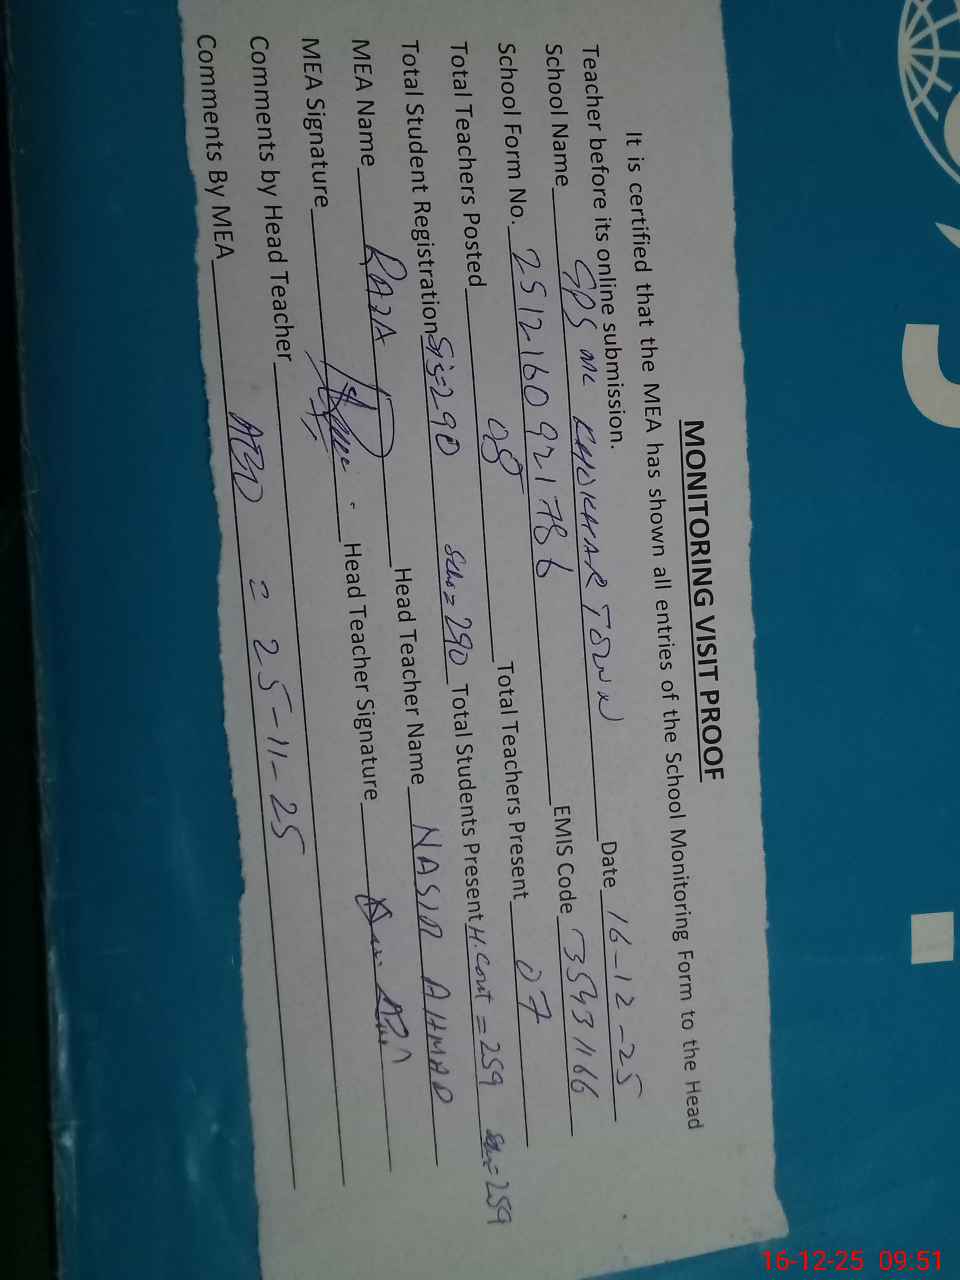 MONITORING VISIT PROOF
It is certified that the MEA has shown all entries of the School Monitoring Form to the Head
Teacher before its online submission.
School Name GPS MC KHOKHAR TOWN Date 16-12-25
School Form No. 2512160921786 EMIS Code 35431166
Total Teachers Posted 08 Total Teachers Present 07
Total Student Registration Sis=290 Sch=290 Total Students Present H.Cout=259 Sch=259
MEA Name RAZA Head Teacher Name NASIR AHMAD
MEA Signature Head Teacher Signature
Comments by Head Teacher
Comments By MEA = 25-11-25
16-12-25 09:51